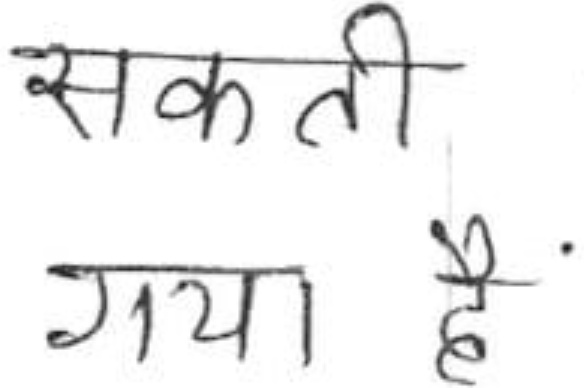 सकती
गया है.